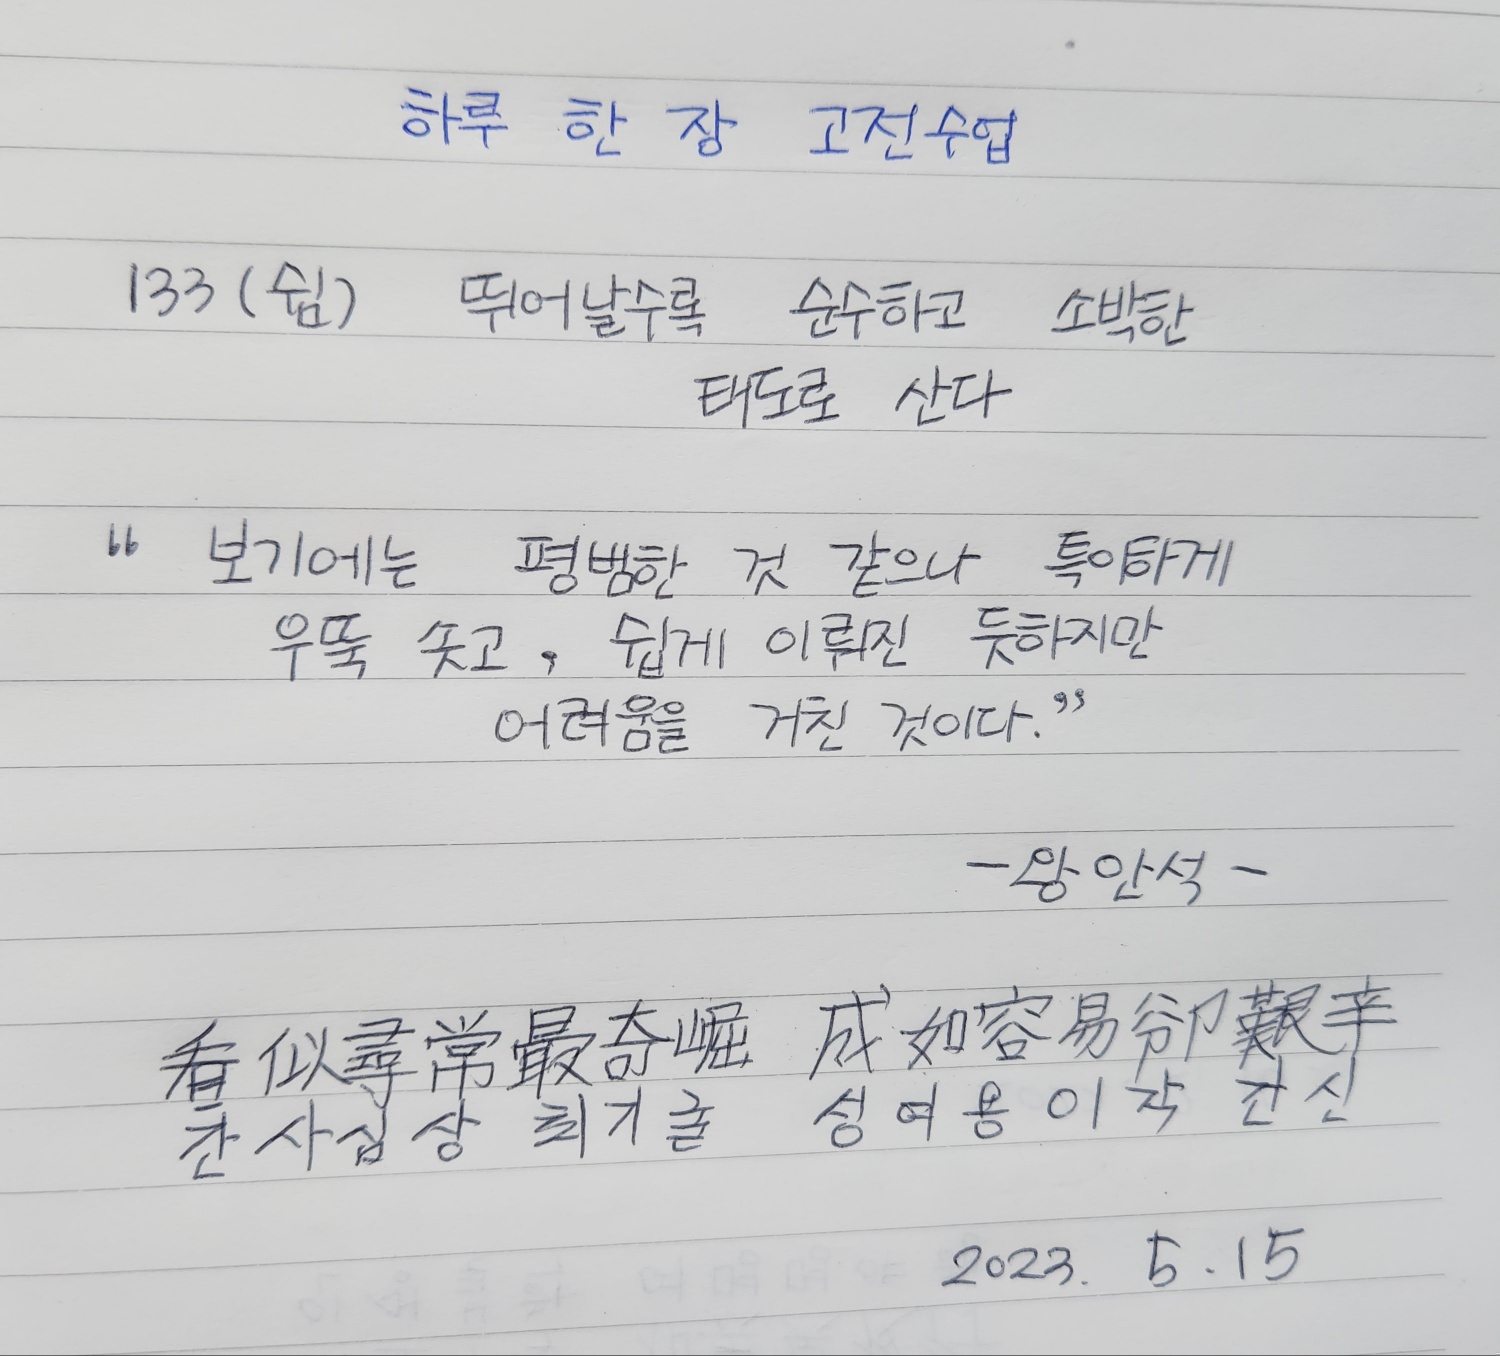 하루 한 장 고전수업
133 (쉼) 뛰어날수록 순수하고 소박한
태도로 산다
“ 보기에는 평범한 것 같으나 특이하게
우뚝 솟고, 쉽게 이뤄진 듯하지만
어려움을 거친 것이다.”
- 왕안석 -
看似尋常最奇崛 成如容易卻艱辛
간사심상 최기굴 성여용이각 간신
2023. 5. 15